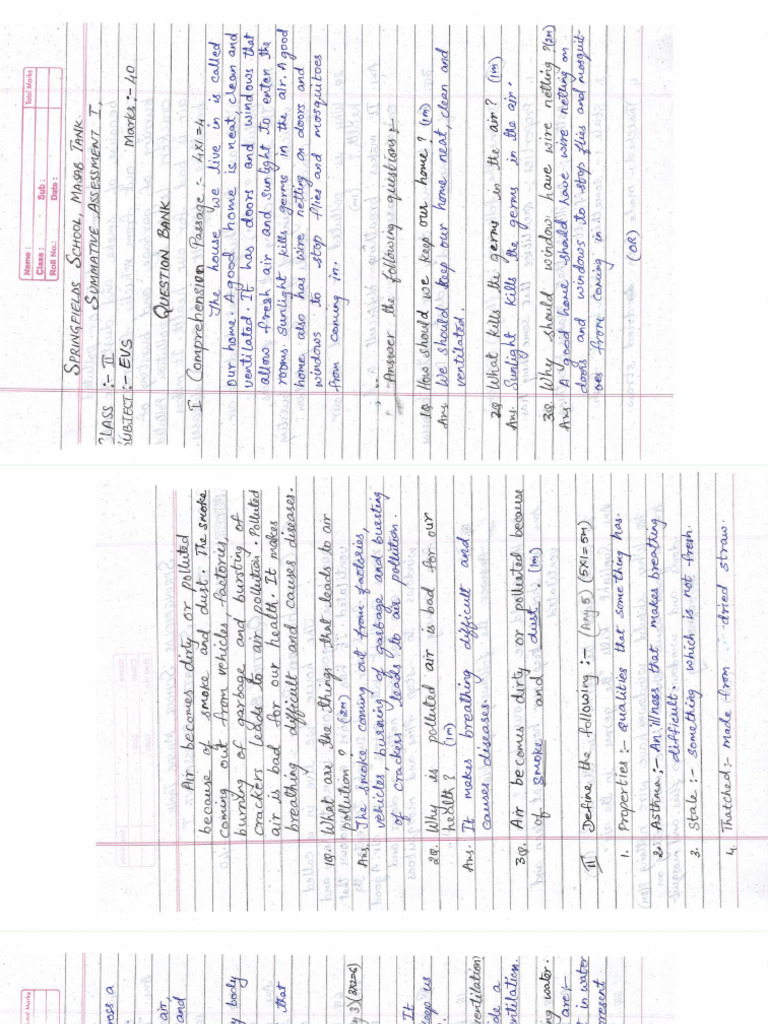 Name :
Class :
Sub :
Roll No.:
Date :
Total Marks
SPRINGFIELDS SCHOOL, MASAB TANK
SUMMATIVE ASSESSMENT I.
CLASS :- II
SUBJECT :- EVS
Marks :- 40
QUESTION BANK
I Comprehension Passage :- 4x1=4
The house we live in is called
our home. A good home is neat, clean and
ventilated. It has doors and windows that
allow fresh air and sunlight to enter the
rooms. Sunlight kills germs in the air. A good
home also has wire netting on doors and
windows to stop flies and mosquitoes
from coming in.
Answer the following questions :-
1Q. How should we keep our home? (1m)
Ans. We should keep our home neat, clean and
ventilated.
2Q. What kills the germs in the air? (1m)
Ans. Sunlight kills the germs in the air.
3Q. Why should window have wire netting? (2m)
Ans. A good home should have wire netting on
doors and windows to stop flies and mosquit-
oes from coming in
(OR)
Air becomes dirty or polluted
because of smoke and dust. The smoke
coming out from vehicles, factories,
burning of garbage and bursting of
crackers leads to air pollution. Polluted
air is bad for our health. It makes
breathing difficult and causes diseases.
1Q. What are the things that leads to air
pollution? (2m)
Ans. The smoke coming out from factories,
vehicles, burning of garbage and bursting
of crackers leads to air pollution.
2Q. Why is polluted air is bad for our
health? (1m)
Ans. It makes breathing difficult and
causes diseases.
3Q. Air becomes dirty or polluted because
of smoke and dust. (1m)
II Define the following :- (Any 5) (5x1=5m)
1. Properties :- qualities that something has.
2. Asthma :- An illness that makes breathing
difficult.
3. Stale :- something which is not fresh.
4. Thatched :- made from dried straw.
Total Marks
oss a
air,
and
body
that
3) (3x2=6)
It
keep us
ventilation
de a
ntilation.
ng water.
are :-
t in water
resent